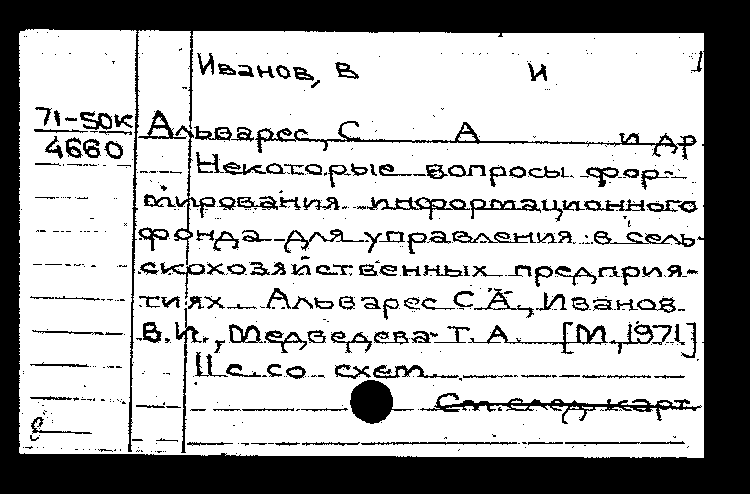 Иванов, В И
71-50к
4660
Альварес, С А и др
Некоторые вопросы фор-
мирования информационного
фонда для управления в сель-
скохозяйственных предприя-
тиях. Альварес С.А., Иванов
В.И., Медведева Т.А. [М., 1971]
11 с. со схем.
См. след. карт.
8